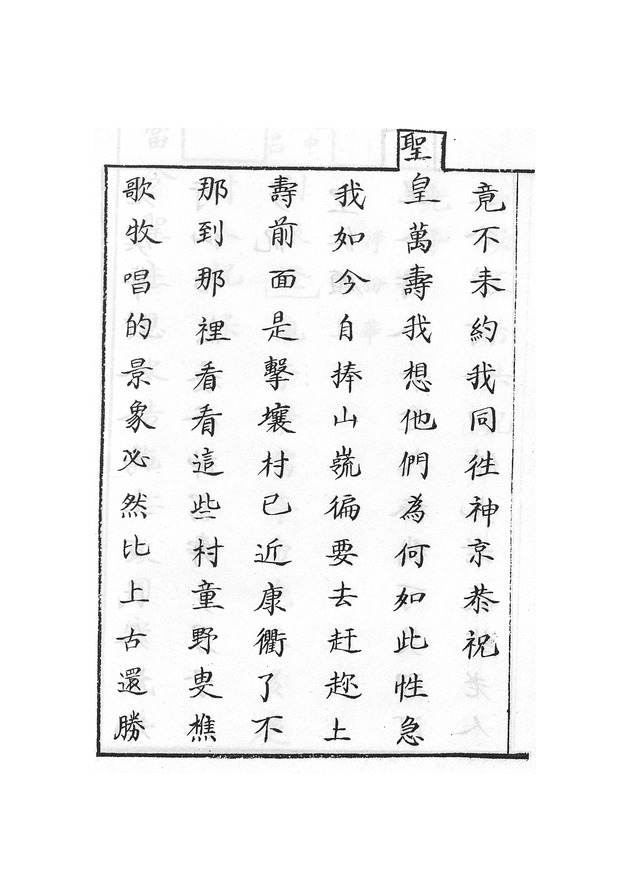 竟不来約我同徃神京恭祝
聖皇萬壽我想他們為何如此性急
我如今自捧山蔬徧要去赶趂上
壽前面是擊壤村已近康衢了不
那到那裡看看這些村童野叟樵
歌牧唱的景象必然比上古還勝